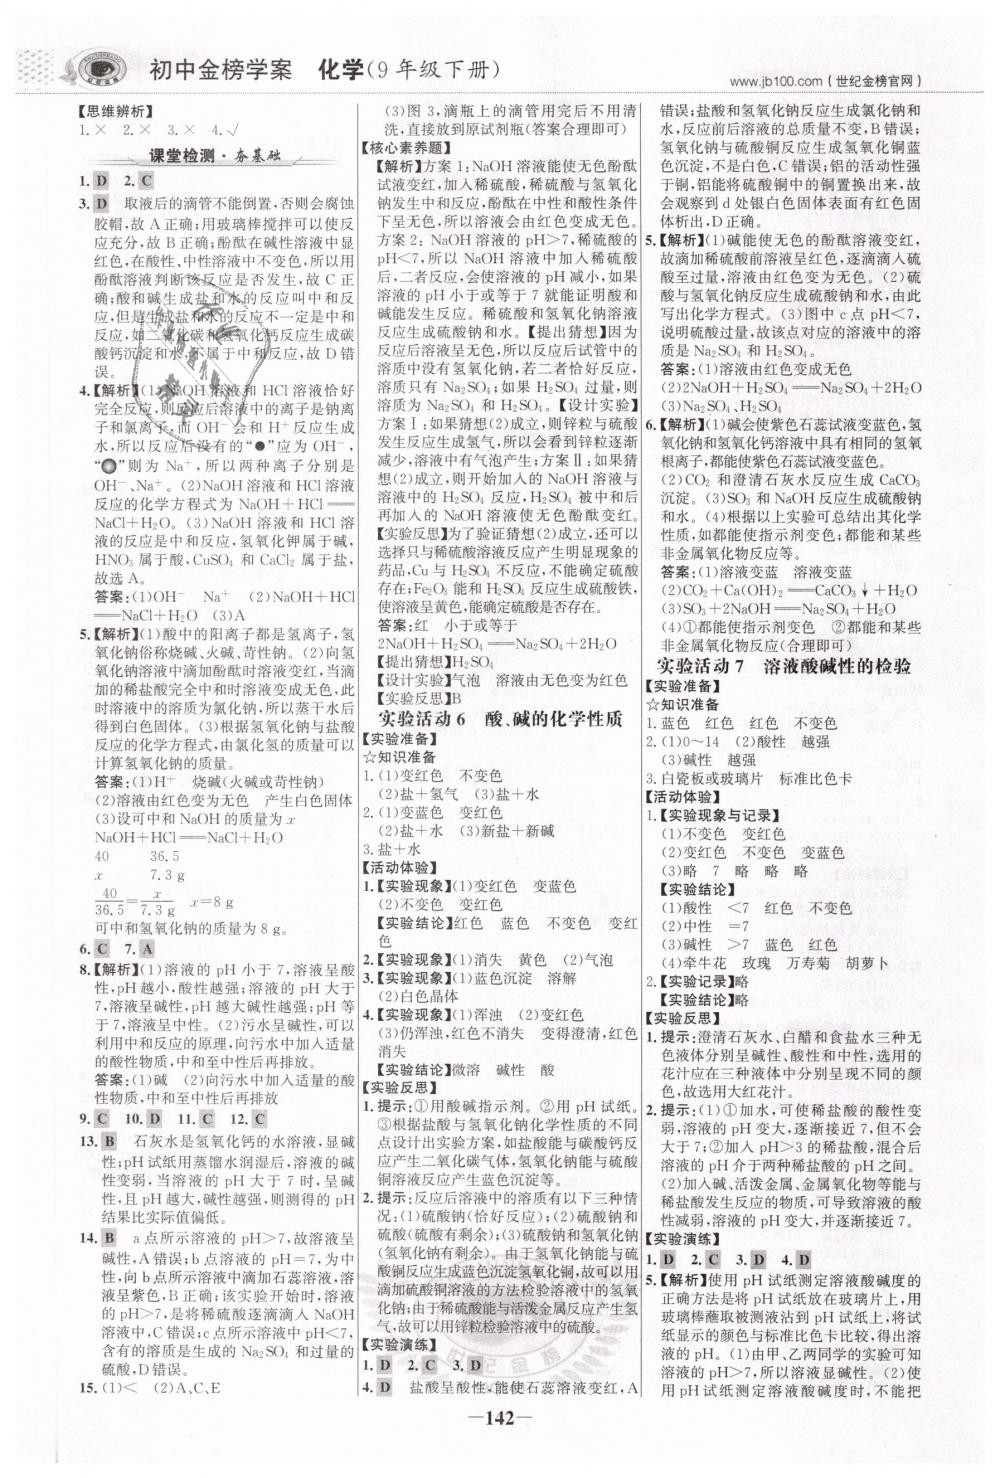 初中金榜学案 化学(9年级下册)
www.jb100.com(世纪金榜官网)
【思维辨析】
1.× 2.× 3.× 4.√
课堂检测·夯基础
1. D 2. C
3. D 取液后的滴管不能倒置,否则会腐蚀
胶帽,故A正确;用玻璃棒搅拌可以使反
应充分,故B正确;酚酞在碱性溶液中显
红色,在酸性、中性溶液中不变色,所以用
酚酞溶液判断该反应是否发生,故C正
确;酸和碱生成盐和水的反应叫中和反
应,但是生成盐和水的反应不一定是中和
反应,如二氧化碳和氢氧化钙反应生成碳
酸钙沉淀和水,不属于中和反应,故D错
误。
4.【解析】(1)NaOH溶液和HCl溶液恰好
完全反应,则反应后溶液中的离子是钠离
子和氯离子,而OH⁻会和H⁺反应生成
水,所以反应后没有的“●”应为OH⁻,
“●”则为Na⁺,所以两种离子分别是
OH⁻、Na⁺。(2)NaOH溶液和HCl溶液
反应的化学方程式为NaOH+HCl══
NaCl+H₂O。(3)NaOH溶液和HCl溶
液的反应是中和反应,氢氧化钾属于碱,
HNO₃属于酸,CuSO₄和CaCl₂属于盐,
故选A。
答案:(1)OH⁻ Na⁺ (2)NaOH+HCl
══NaCl+H₂O (3)A
5.【解析】(1)酸中的阳离子都是氢离子,氢
氧化钠俗称烧碱、火碱、苛性钠。(2)向氢
氧化钠溶液中滴加酚酞时溶液变红,当滴
加的稀盐酸完全中和时溶液变成无色,此
时溶液中的溶质为氯化钠,所以蒸干水后
得到白色固体。(3)根据氢氧化钠与盐酸
反应的化学方程式,由氯化氢的质量可以
计算氢氧化钠的质量。
答案:(1)H⁺ 烧碱(火碱或苛性钠)
(2)溶液由红色变为无色 产生白色固体
(3)设可中和NaOH的质量为x
NaOH+HCl══NaCl+H₂O
40 36.5
x 7.3 g
40/36.5=x/7.3 g x=8 g
可中和氢氧化钠的质量为8 g。
6. C 7. A
8.【解析】(1)溶液的pH小于7,溶液呈酸
性,pH越小,酸性越强;溶液的pH大于
7,溶液呈碱性,pH越大碱性越强;pH等
于7,溶液呈中性。(2)污水呈碱性,可以
利用中和反应的原理,向污水中加入适量
的酸性物质,中和至中性后再排放。
答案:(1)碱 (2)向污水中加入适量的酸
性物质,中和至中性后再排放
9. C 10. D 11. C 12. C
13. B 石灰水是氢氧化钙的水溶液,显碱
性;pH试纸用蒸馏水润湿后,溶液的碱
性变弱,当溶液的pH大于7时,呈碱
性,且pH越大,碱性越强,则测得的pH
结果比实际值偏低。
14. B a点所示溶液的pH>7,故溶液呈
碱性,A错误;b点溶液的pH=7,为中
性,向b点所示溶液中滴加石蕊溶液,溶
液呈紫色,B正确;该实验开始时,溶液
的pH>7,是将稀硫酸逐滴滴入NaOH
溶液中,C错误;c点所示溶液中pH<7,
含有的溶质是生成的Na₂SO₄和过量的
硫酸,D错误。
15.(1)< (2)A、C、E
(3)图3,滴瓶上的滴管用完后不用清
洗,直接放到原试剂瓶(答案合理即可)
【核心素养题】
【解析】方案1:NaOH溶液能使无色酚酞
试液变红,加入稀硫酸,稀硫酸与氢氧化
钠发生中和反应,酚酞在中性和酸性条件
下呈无色,所以溶液会由红色变成无色。
方案2:NaOH溶液的pH>7,稀硫酸的
pH<7,所以NaOH溶液中加入稀硫酸
后,二者反应,会使溶液的pH减小,如果
溶液的pH小于或等于7就能证明酸和
碱能发生反应。稀硫酸和氢氧化钠溶液
反应生成硫酸钠和水。【提出猜想】因为
反应后溶液呈无色,所以反应后试管中的
溶质中没有氢氧化钠,若二者恰好反应,
溶质只有Na₂SO₄;如果H₂SO₄过量,则
溶质为Na₂SO₄和H₂SO₄。【设计实验】
方案Ⅰ:如果猜想(2)成立,则锌粒与硫酸
发生反应生成氢气,所以会看到锌粒逐渐
减少,溶液中有气泡产生;方案Ⅱ:如果猜
想(2)成立,则开始加入的NaOH溶液与
溶液中的H₂SO₄反应,H₂SO₄被中和后
再加入的NaOH溶液使无色酚酞变红。
【实验反思】为了验证猜想(2)成立,还可以
选择只与稀硫酸溶液反应产生明显现象的
药品,Cu与H₂SO₄不反应,不能确定硫酸
存在;Fe₂O₃能和H₂SO₄反应生成硫酸铁,
使溶液呈黄色,能确定硫酸是否存在。
答案:红 小于或等于
2NaOH+H₂SO₄══Na₂SO₄+2H₂O
【提出猜想】H₂SO₄
【设计实验】气泡 溶液由无色变为红色
【实验反思】B
实验活动6 酸、碱的化学性质
【实验准备】
☆知识准备
1.(1)变红色 不变色
(2)盐+氢气 (3)盐+水
2.(1)变蓝色 变红色
(2)盐+水 (3)新盐+新碱
3.盐+水
【活动体验】
1.【实验现象】(1)变红色 变蓝色
(2)不变色 变红色
【实验结论】红色 蓝色 不变色 变红
色
2.【实验现象】(1)消失 黄色 (2)气泡
3.【实验现象】(1)蓝色沉淀 溶解
(2)白色晶体
4.【实验现象】(1)浑浊 (2)变红色
(3)仍浑浊,红色不消失 变得澄清,红色
消失
【实验结论】微溶 碱性 酸
【实验反思】
1.提示:①用酸碱指示剂。②用pH试纸。
③根据盐酸与氢氧化钠化学性质的不同
点设计出实验方案,如盐酸能与碳酸钙反
应产生二氧化碳气体,氢氧化钠能与硫酸
铜溶液反应产生蓝色沉淀等。
2.提示:反应后溶液中的溶质有以下三种情
况:(1)硫酸钠(恰好反应);(2)硫酸钠和
硫酸(硫酸有剩余);(3)硫酸钠和氢氧化钠
(氢氧化钠有剩余)。由于氢氧化钠能与硫
酸铜反应生成蓝色沉淀氢氧化铜,故可以用
滴加硫酸铜溶液的方法检验溶液中的氢氧
化钠;由于稀硫酸能与活泼金属反应产生氢
气,故可以用锌粒检验溶液中的硫酸。
【实验演练】
1. D 2. C 3. D
4. D 盐酸呈酸性,能使石蕊溶液变红,A
错误;盐酸和氢氧化钠反应生成氯化钠和
水,反应前后溶液的总质量不变,B错误;
氢氧化钠与硫酸铜反应生成氢氧化铜蓝
色沉淀,不是白色,C错误;铝的活动性强
于铜,铝能将硫酸铜中的铜置换出来,故
会观察到d处银白色固体表面有红色固
体析出,D正确。
5.【解析】(1)碱能使无色的酚酞溶液变红,
故滴加稀硫酸前溶液呈红色,逐滴滴入硫
酸至过量,溶液由红色变为无色。(2)硫
酸与氢氧化钠反应生成硫酸钠和水,由此
写出化学方程式。(3)图中c点pH<7,
说明硫酸过量,故该点对应的溶液中的溶
质是Na₂SO₄和H₂SO₄。
答案:(1)溶液由红色变成无色
(2)2NaOH+H₂SO₄══Na₂SO₄+2H₂O
(3)Na₂SO₄、H₂SO₄
6.【解析】(1)碱会使紫色石蕊试液变蓝色,氢
氧化钠和氢氧化钙溶液中具有相同的氢氧
根离子,都能使紫色石蕊试液变蓝色。
(2)CO₂和澄清石灰水反应生成CaCO₃
沉淀。(3)SO₃和NaOH反应生成硫酸钠
和水。(4)根据以上实验可总结出其化学
性质,如都能使指示剂变色;都能和某些
非金属氧化物反应等。
答案:(1)溶液变蓝 溶液变蓝
(2)CO₂+Ca(OH)₂══CaCO₃↓+H₂O
(3)SO₃+2NaOH══Na₂SO₄+H₂O
(4)①都能使指示剂变色 ②都能和某些
非金属氧化物反应(合理即可)
实验活动7 溶液酸碱性的检验
【实验准备】
☆知识准备
1.蓝色 红色 红色 不变色
2.(1)0~14 (2)酸性 越强
(3)碱性 越强
3.白瓷板或玻璃片 标准比色卡
【活动体验】
1.【实验现象与记录】
(1)不变色 变红色
(2)变红色 不变色 变蓝色
(3)略 7 略 略 略
【实验结论】
(1)酸性 <7 红色 不变色
(2)中性 =7
(3)碱性 >7 蓝色 红色
(4)牵牛花 玫瑰 万寿菊 胡萝卜
2.【实验记录】略
【实验结论】略
【实验反思】
1.提示:澄清石灰水、白醋和食盐水三种无
色液体分别呈碱性、酸性和中性,选用的
花汁应在三种液体中分别呈现不同的颜
色,故选用大红花汁。
2.提示:(1)①加水,可使稀盐酸的酸性变
弱,溶液的pH变大,逐渐接近7,但不会
大于7;②加入pH>3的稀盐酸,混合后
溶液的pH介于两种稀盐酸的pH之间。
(2)加入碱、活泼金属、金属氧化物等能与
稀盐酸发生反应的物质,可导致溶液的酸
性减弱,溶液的pH变大,并逐渐接近7。
【实验演练】
1. D 2. C 3. D 4. D
5.【解析】使用pH试纸测定溶液酸碱度的
正确方法是将pH试纸放在玻璃片上,用
玻璃棒蘸取被测液沾到试纸上,将试
纸显示的颜色与标准比色卡比较,得出溶
液的pH。(1)由甲、乙两同学的实验可知
溶液的pH>7,所以溶液显碱性。(2)使
用pH试纸测定溶液酸碱度时,不能把
—142—